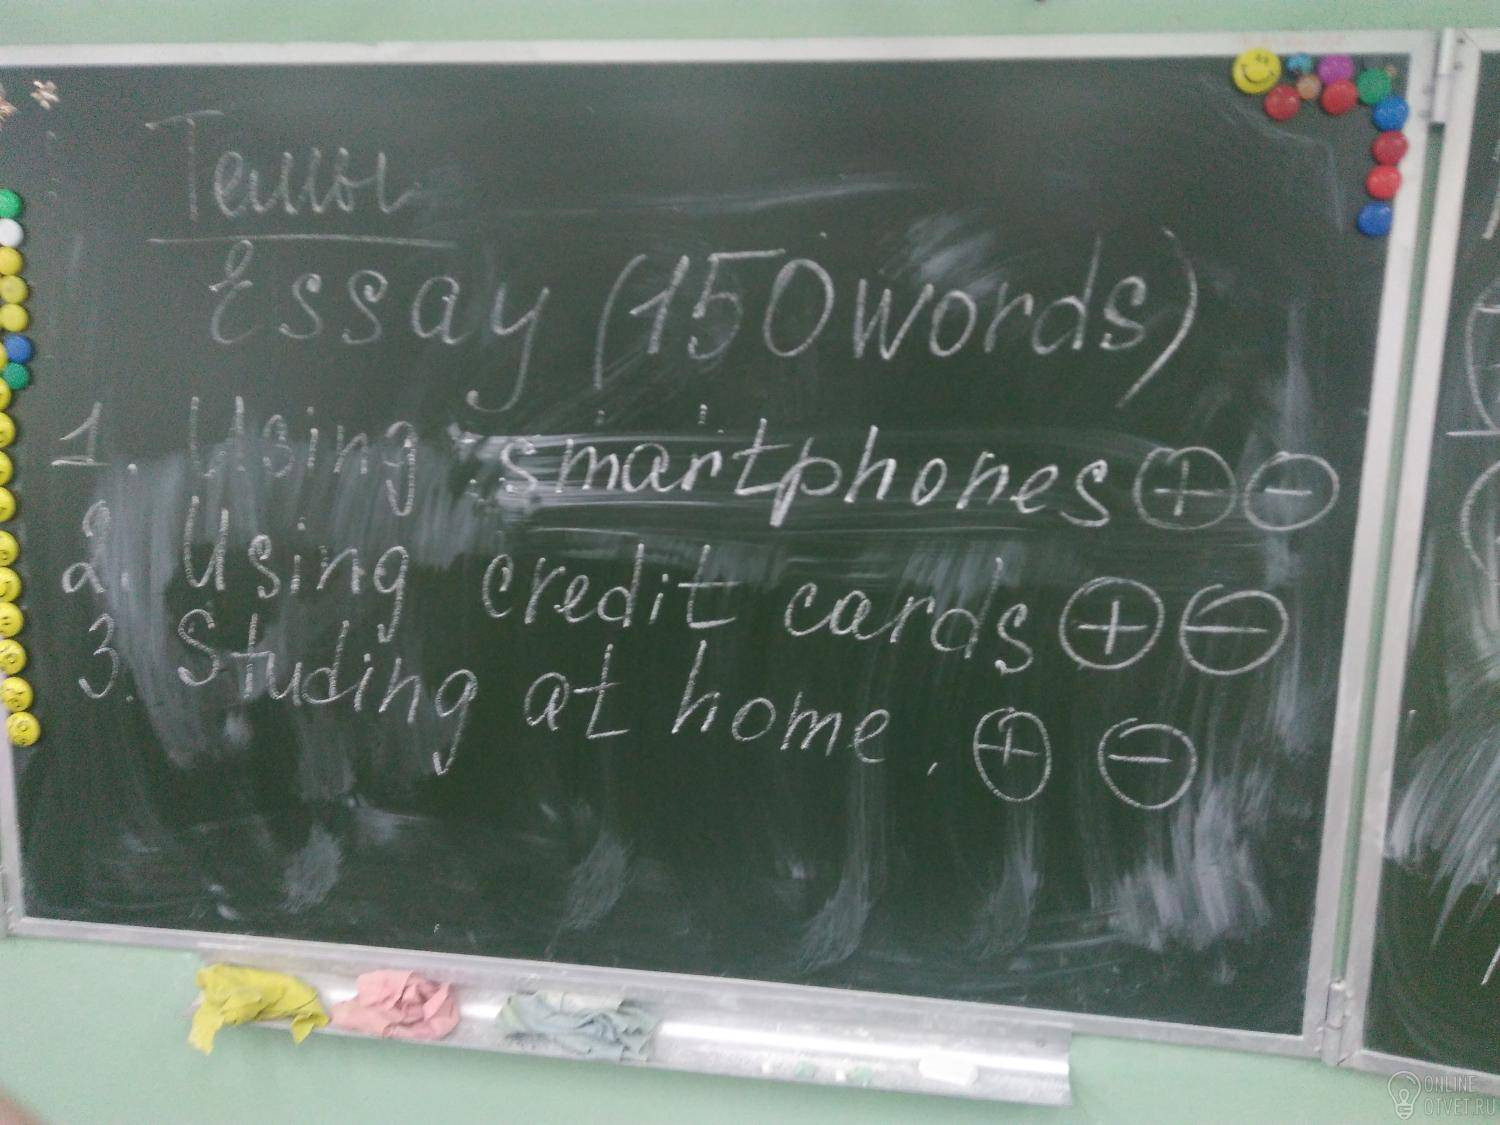 Темы
Essay (150 words)
1. Using smartphones ⊕ ⊖
2. Using credit cards ⊕ ⊖
3. Studing at home. ⊕ ⊖
ONLINE
OTVET.RU